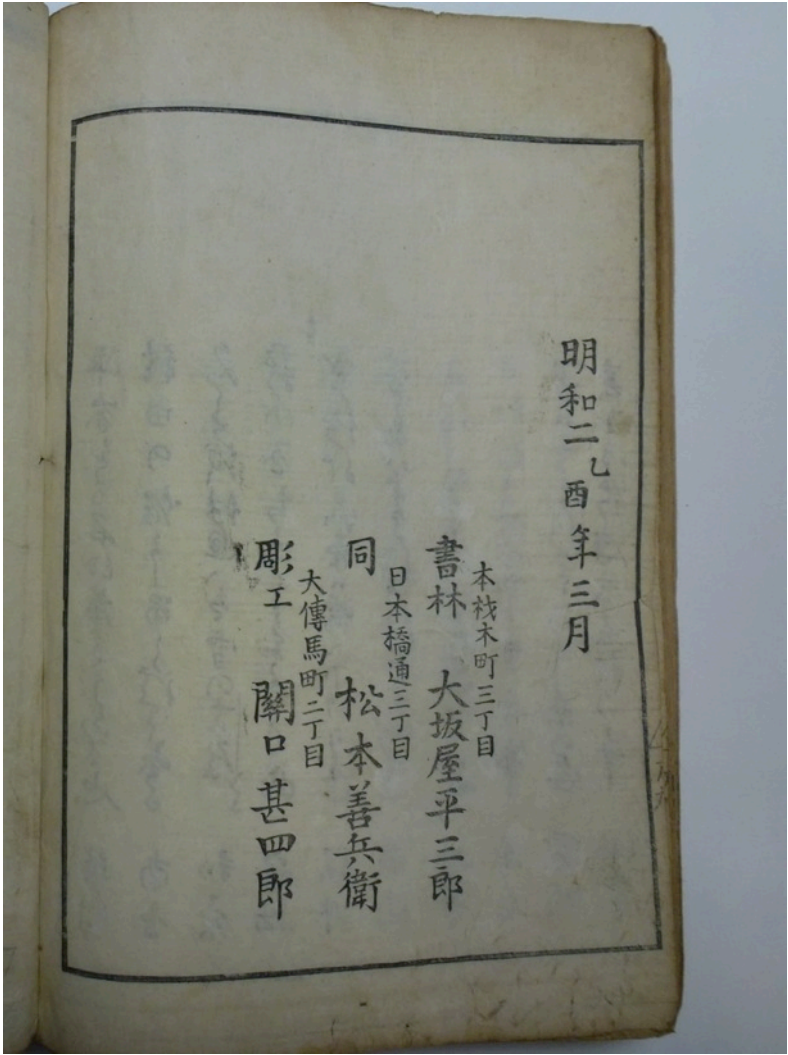 明和二乙酉年三月
本材木町三丁目
書林 大坂屋平三郎
日本橋通三丁目
同 松本善兵衛
大傳馬町二丁目
彫工 關口甚四郎